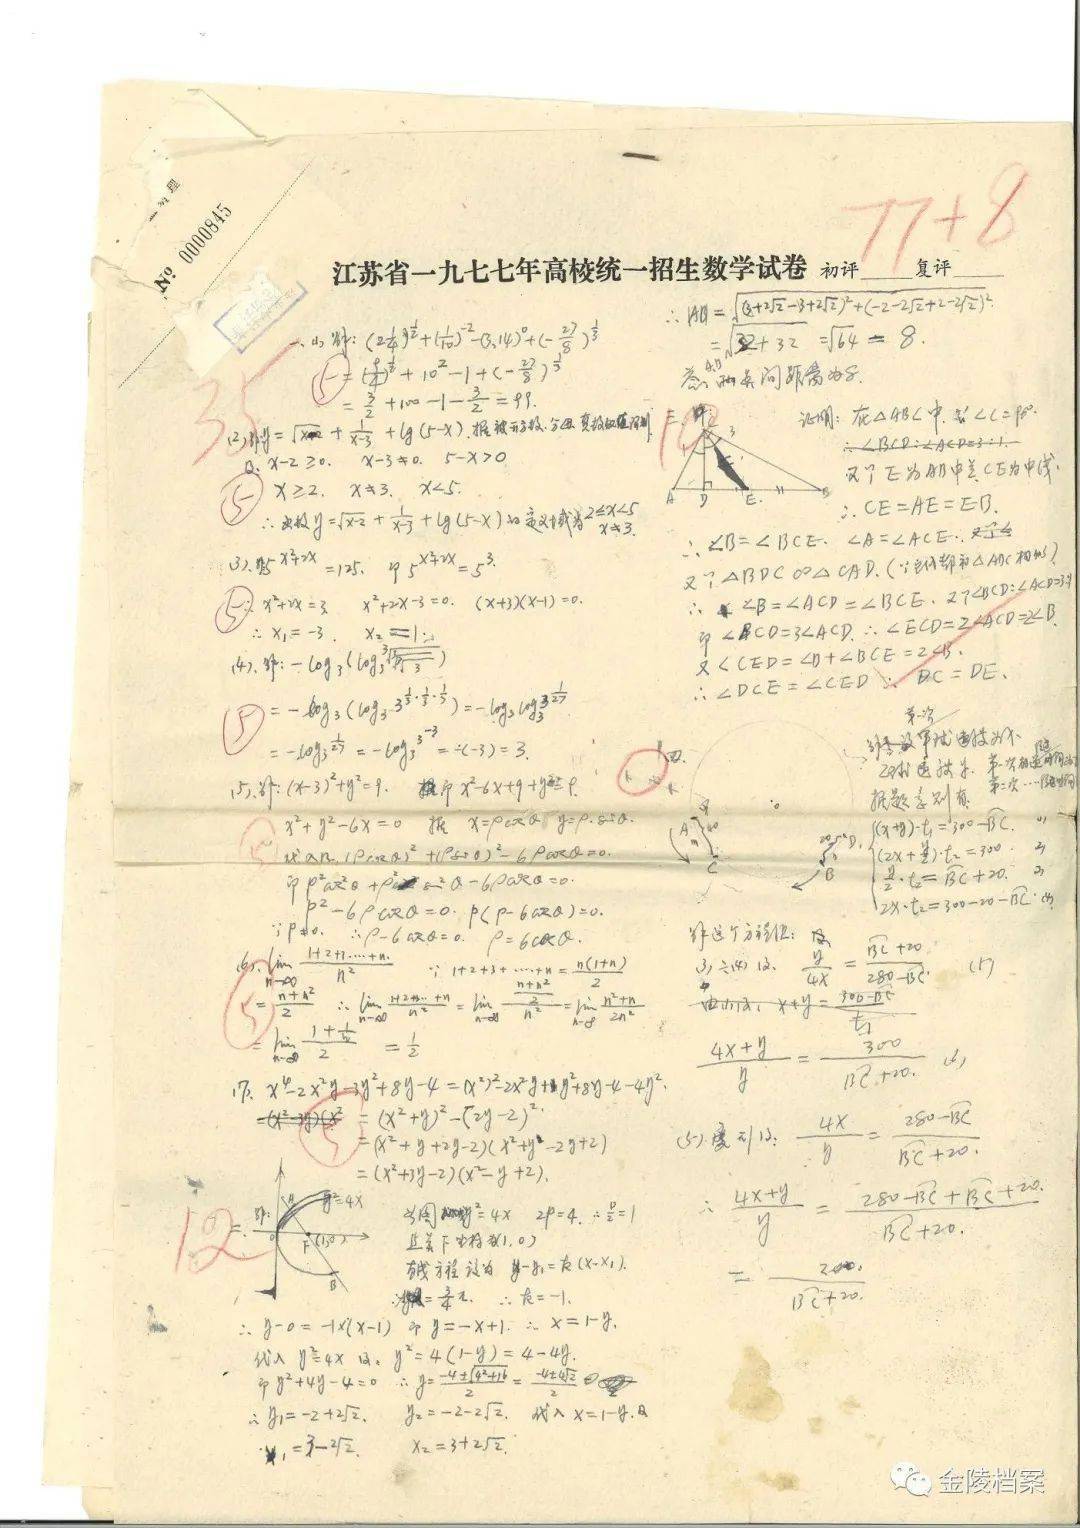 理
№ 0000845
77+8
江苏省一九七七年高校统一招生数学试卷 初评 复评
35
一、(1)解: (2¼)^½+(1/10)^-2-(3.14)^0+(-27/8)^⅓
5
=(9/4)^½+10²-1+(-27/8)^⅓
=3/2+100-1-3/2=99.
(2)解y=√x-2+1/x-3+lg(5-x).
x-2≥0. x-3≠0. 5-x>0
5
x≥2. x≠3. x<5.
∴函数y=√x-2+1/x-3+lg(5-x)的定义域为2≤x<5
x≠3.
(3)解5^x²+2x=125. 即5^x²+2x=5³.
5
∴x²+2x=3 x²+2x-3=0. (x+3)(x-1)=0.
∴x₁=-3. x₂=1.
(4)解:-log₃(log₃∛∛∛3)
5
=-log₃(log₃3^⅓·⅓·⅓)=-log₃log₃3^1/27
=-log₃1/27=-log₃3^-3=-(-3)=3.
(5)解:(x-3)²+y²=9. 即x²-6x+9+y²=9.
5
x²+y²-6x=0 据 x=ρcosθ y=ρ·sinθ.
代入得(ρcosθ)²+(ρsinθ)²-6ρcosθ=0.
即ρ²cos²θ+ρ²sin²θ-6ρcosθ=0.
ρ²-6ρcosθ=0. ρ(ρ-6cosθ)=0.
∵ρ≠0. ∴ρ-6cosθ=0. ρ=6cosθ.
(6). lim n→∞ 1+2+3…+n/n² ∵1+2+3+…+n=n(1+n)/2
5
=n+n²/2 ∴lim n→∞ 1+2+…+n/n²=lim n→∞ n+n²/2/n²=lim n→∞ n²+n/2n²
=lim n→∞ 1+1/n/2 =1/2
17. x⁴-2x²y-3y²+8y-4=(x²)²-2x²y+y²+8y-4-4y².
5
=(x²+y)²-(2y-2)².
=(x²+y+2y-2)(x²+y-2y+2)
=(x²+3y-2)(x²-y+2).
12
二. 解:
A y²=4x
0 F(1,0)
B
y²=4x 2p=4. ∴p/2=1
焦点F坐标为(1,0)
直线方程设为 y-y₁=k(x-x₁).
=3/4π. ∴k=-1.
∴y-0=-1×(x-1) 即y=-x+1. ∴x=1-y.
代入y²=4x得. y²=4(1-y)=4-4y.
即y²+4y-4=0 ∴y=-4±√4²+16/2=-4±4√2/2
∴y₁=-2+2√2. y₂=-2-2√2. 代入x=1-y.得
x₁=3-2√2. x₂=3+2√2.
∴|AB|=√(3+2√2-3+2√2)²+(-2-2√2+2-2√2)²
=√32+32=√64=8.
A.B两点间距离为8.
三
A D E B
证明: 在△ABC中. ∠C=90°.
∴∠BCD:∠ACD=3:1.
又∵E为AB中点CE为中线
∴CE=AE=EB.
∴∠B=∠BCE. ∠A=∠ACE.
又∵△BDC∽△CAD.(∵它们都和△ABC相似)
∴∠B=∠ACD=∠BCE. 又∵∠BCD:∠ACD=3:1
即∠BCD=3∠ACD. ∴∠ECD=2∠ACD=2∠B.
又∠CED=∠B+∠BCE=2∠B.
∴∠DCE=∠CED ∴DC=DE.
四.
A C D B
(x+y)·t₁=300-BC. (1)
(2x+y/2)·t₂=300 (2)
y/2·t₂=BC+20. (3)
2x·t₂=300-20-BC. (4)
解这个方程组:
(3)÷(4)得. y/4x=BC+20/280-BC. (5)
由(1)得. x+y=300-BC/t₁
4x+y/y=300/BC+20. (6)
(5)变形得: 4x/y=280-BC/BC+20.
∴4x+y/y=280-BC+BC+20./BC+20.
=200./BC+20.
金陵档案